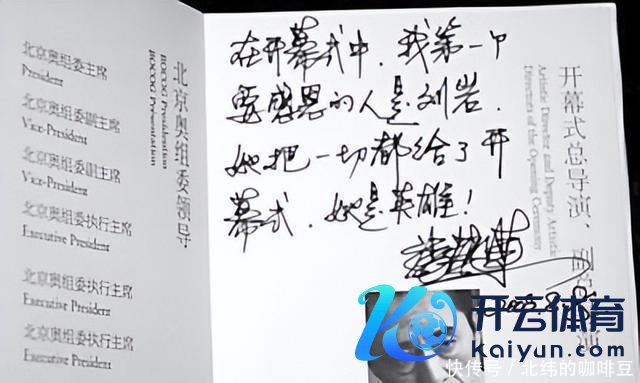 北京奥组委领导
BOCOG Presidential
BOCOG Presentation
北京奥组委主席
President
北京奥组委副主席
Vice-President
北京奥组委副主席
Vice-President
北京奥组委执行主席
Executive President
北京奥组委执行主席
Executive President
北京奥组委执行主席
Executive President
在开幕式中，我第一个
要感恩的人是刘岩．
她把一切都给了开
幕式．她是英雄！
开幕式总导演、
Artistic Director and Deputy Artistic
Directors of the Opening Ceremony
开云体育
Kaiyun.com
快传号／北纬的咖啡豆